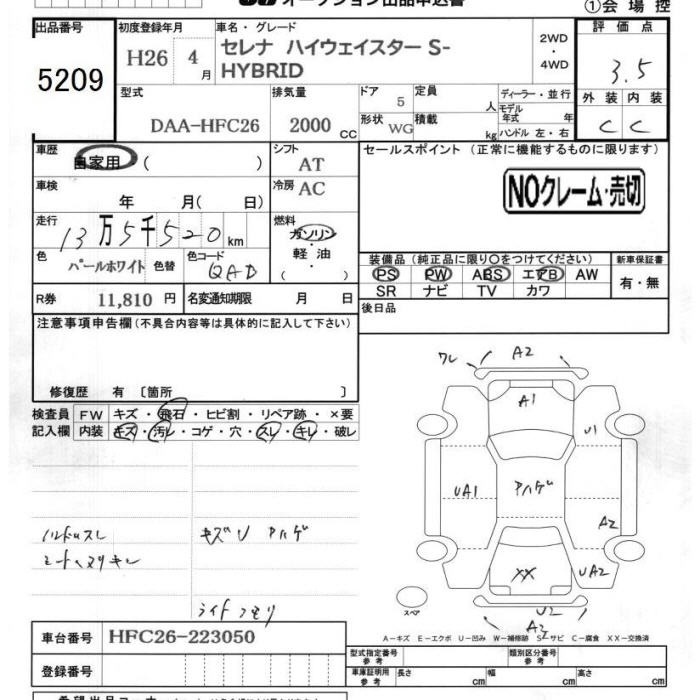 オークション出品申込書
①会場控
出品番号
5209
初度登録年月
H26 4月
車名・グレード
セレナ ハイウェイスター S-
HYBRID
2WD
・
4WD
評価点
3.5
外装 内装
C C
型式
DAA-HFC26
排気量
2000 CC
ドア 5
形状 WG
定員 人
積載 kg
ディーラー・並行
モデル年式 年
ハンドル 左・右
車歴
自家用 ( )
シフト AT
車検
年 月( 日)
冷房 AC
走行
13万5千520km
燃料
ガソリン
・
軽油
・
( )
色
パールホワイト
色替
色コード
QAB
R券 11,810 円
名変通知期限 月 日
セールスポイント (正常に機能するものに限ります)
NOクレーム・売切
装備品 (純正品に限り○をつけてください)
PS PW ABS エアB AW
SR ナビ TV カワ
新車保証書
有・無
後日品
注意事項申告欄 (不具合内容等は具体的に記入して下さい)
修復歴 有 〔箇所 〕
検査員
記入欄
FW キズ・飛石・ヒビ割・リペア跡・×要
内装 キズ・汚レ・コゲ・穴・スレ・キレ・破レ
ハンドルスレ
シートヘタリキレ
キズU アハゲ
ライトクモリ
ワレ
A2
A1
U1
UA1
アハゲ
A2
XX
UA2
U2
A2
スペア
A−キズ E−エクボ U−凹み W−補修跡 S−サビ C−腐食 XX−交換済
車台番号 HFC26-223050
登録番号
型式指定番号
参考
類別区分番号
参考
車庫証明用
参考
長さ cm
幅 cm
高さ cm